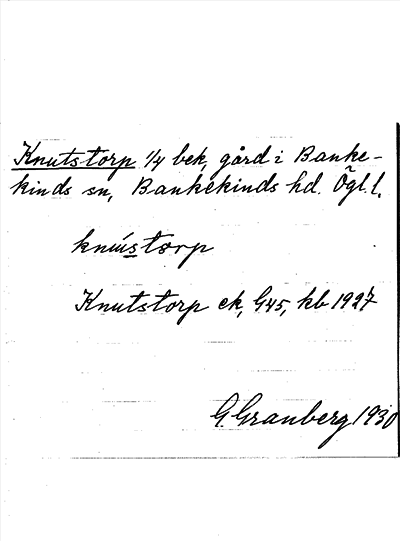 Knutstorp 1/4 bek, gård i Banke-
kinds sn, Bankekinds hd. Ögl. l.
knústorp
Knutstorp ek, G45, kb 1927
G. Granberg 1930